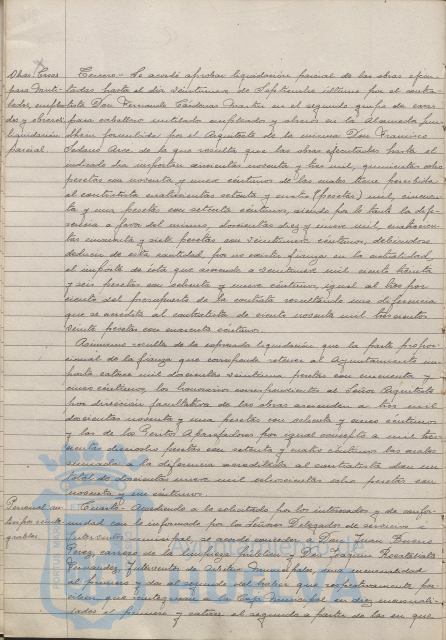 Obras. Casas
para Muti-
lados, emplea-
dos y obreros
liquidación
parcial.
Tercero.- Se acordó aprobar liquidación parcial de las obras ejecu-
tadas hasta el día veintinueve de Septiembre último por el contra-
tista Don Fernando Cárdenas Martín en el segundo grupo de casas
para caballeros mutilados empleados y obreros en la Alameda
formulada por el Arquitecto de la misma Don Francisco
Sedano Arce de la que resulta que las obras ejecutadas hasta el
indicado día importan seiscientas noventa y tres mil, quinientas ocho
pesetas con noventa y nueve céntimos de las cuales tiene percibida
el contratista cuatrocientas setenta y cuatro (pesetas) mil, cincuen-
ta y una pesetas con setenta céntimos, siendo por lo tanto la dife-
rencia a favor del mismo, doscientas diez y nueve mil, cuatrocien-
tas cincuenta y siete pesetas con veintinueve céntimos, debiéndose
deducir de esta cantidad, por no existir fianza en la actualidad,
el importe de ésta que asciende a veintinueve mil ciento treinta
y seis pesetas con ochenta y nueve céntimos, igual al por
ciento del presupuesto de la contrata resultando una diferencia
que se acredita al contratista de ciento noventa mil trescientas
veinte pesetas con cuarenta céntimos.
Asimismo resulta de la expresada liquidación que la parte propor-
cional de la fianza que corresponde retener al Ayuntamiento im-
porta catorce mil doscientas veintiuna pesetas con cincuenta y
cinco céntimos, los honorarios correspondientes al Señor Arquitecto
por dirección facultativa de las obras ascienden a tres mil
doscientas noventa y una pesetas con ochenta y cinco céntimos
y los de los Peritos Aparejadores por igual concepto a mil tres-
cientas dieciocho pesetas con setenta y cuatro céntimos las cuales
sumadas a la diferencia acreditada al contratista dan un
total de doscientas nueve mil ochocientas ocho pesetas con
noventa y un céntimos.
Personal an-
ticipos reinte-
grables.
Cuarto. Accediendo a lo solicitado por los interesados y de confor-
midad con lo informado por los Señores Delegados de servicios e
Interventor municipal, se acordó conceder a Don Juan
Pérez, carrero de la limpieza pública y Don
Fernández, Interventor de Arbitrios Municipales, una mensualidad
al primero y dos al segundo del haber que respectivamente per-
ciben que reintegrarán a la Caja Municipal en diez mensuali-
dades el primero y catorce el segundo a partir de las en que